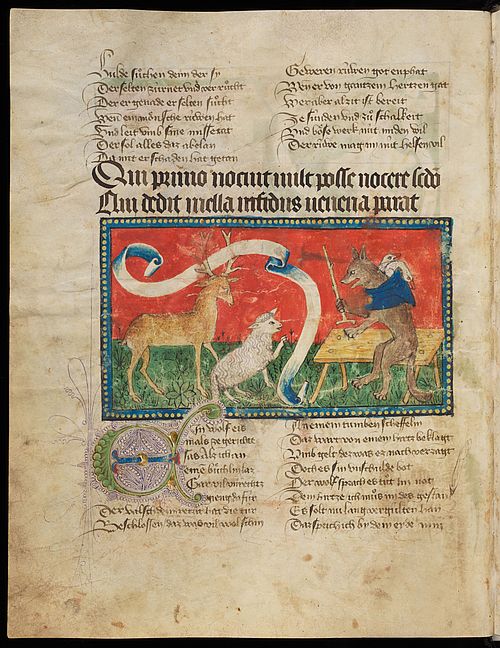 Hulde sůchen denn der sy
Der selten zúrnet und ver růcht
Der er genade er selten sůcht
Wen ein mönsche rúwen hat
Und leit umb sine missetat
Der sol alles daz abelan
Da mit er schaden hat getan
Geweren rúwen got enphat
Wen er von gantzen hertzen gat
Wer aber alzit ist bereit
Ze súnden und zů schalkeit
Und böse werk nút miden wil
Der rúwe mag im nút helfen vil
Qui primo nocuit uult posse nocere secdo
Qui dedit mella infidus venena parat
Ein wolf eis
mals ze gerichte
sas Als ich an
eime bůchlin las
Gar vil unrechtz
da für
Der valsch dem recht hat die túr
Beschlossen daz was vil wol schin
An einem tumben scheffelin
Daz wart von einem hirtz beklagt
Umb gelt der was er nach verzagt
Doch es sin unschulde bot
Der wolf sprach es tůt im not
Dem hirtze ich můs in des gestan
Es sol nu lang vergulten han
Daz sprich ich by dem eyde min